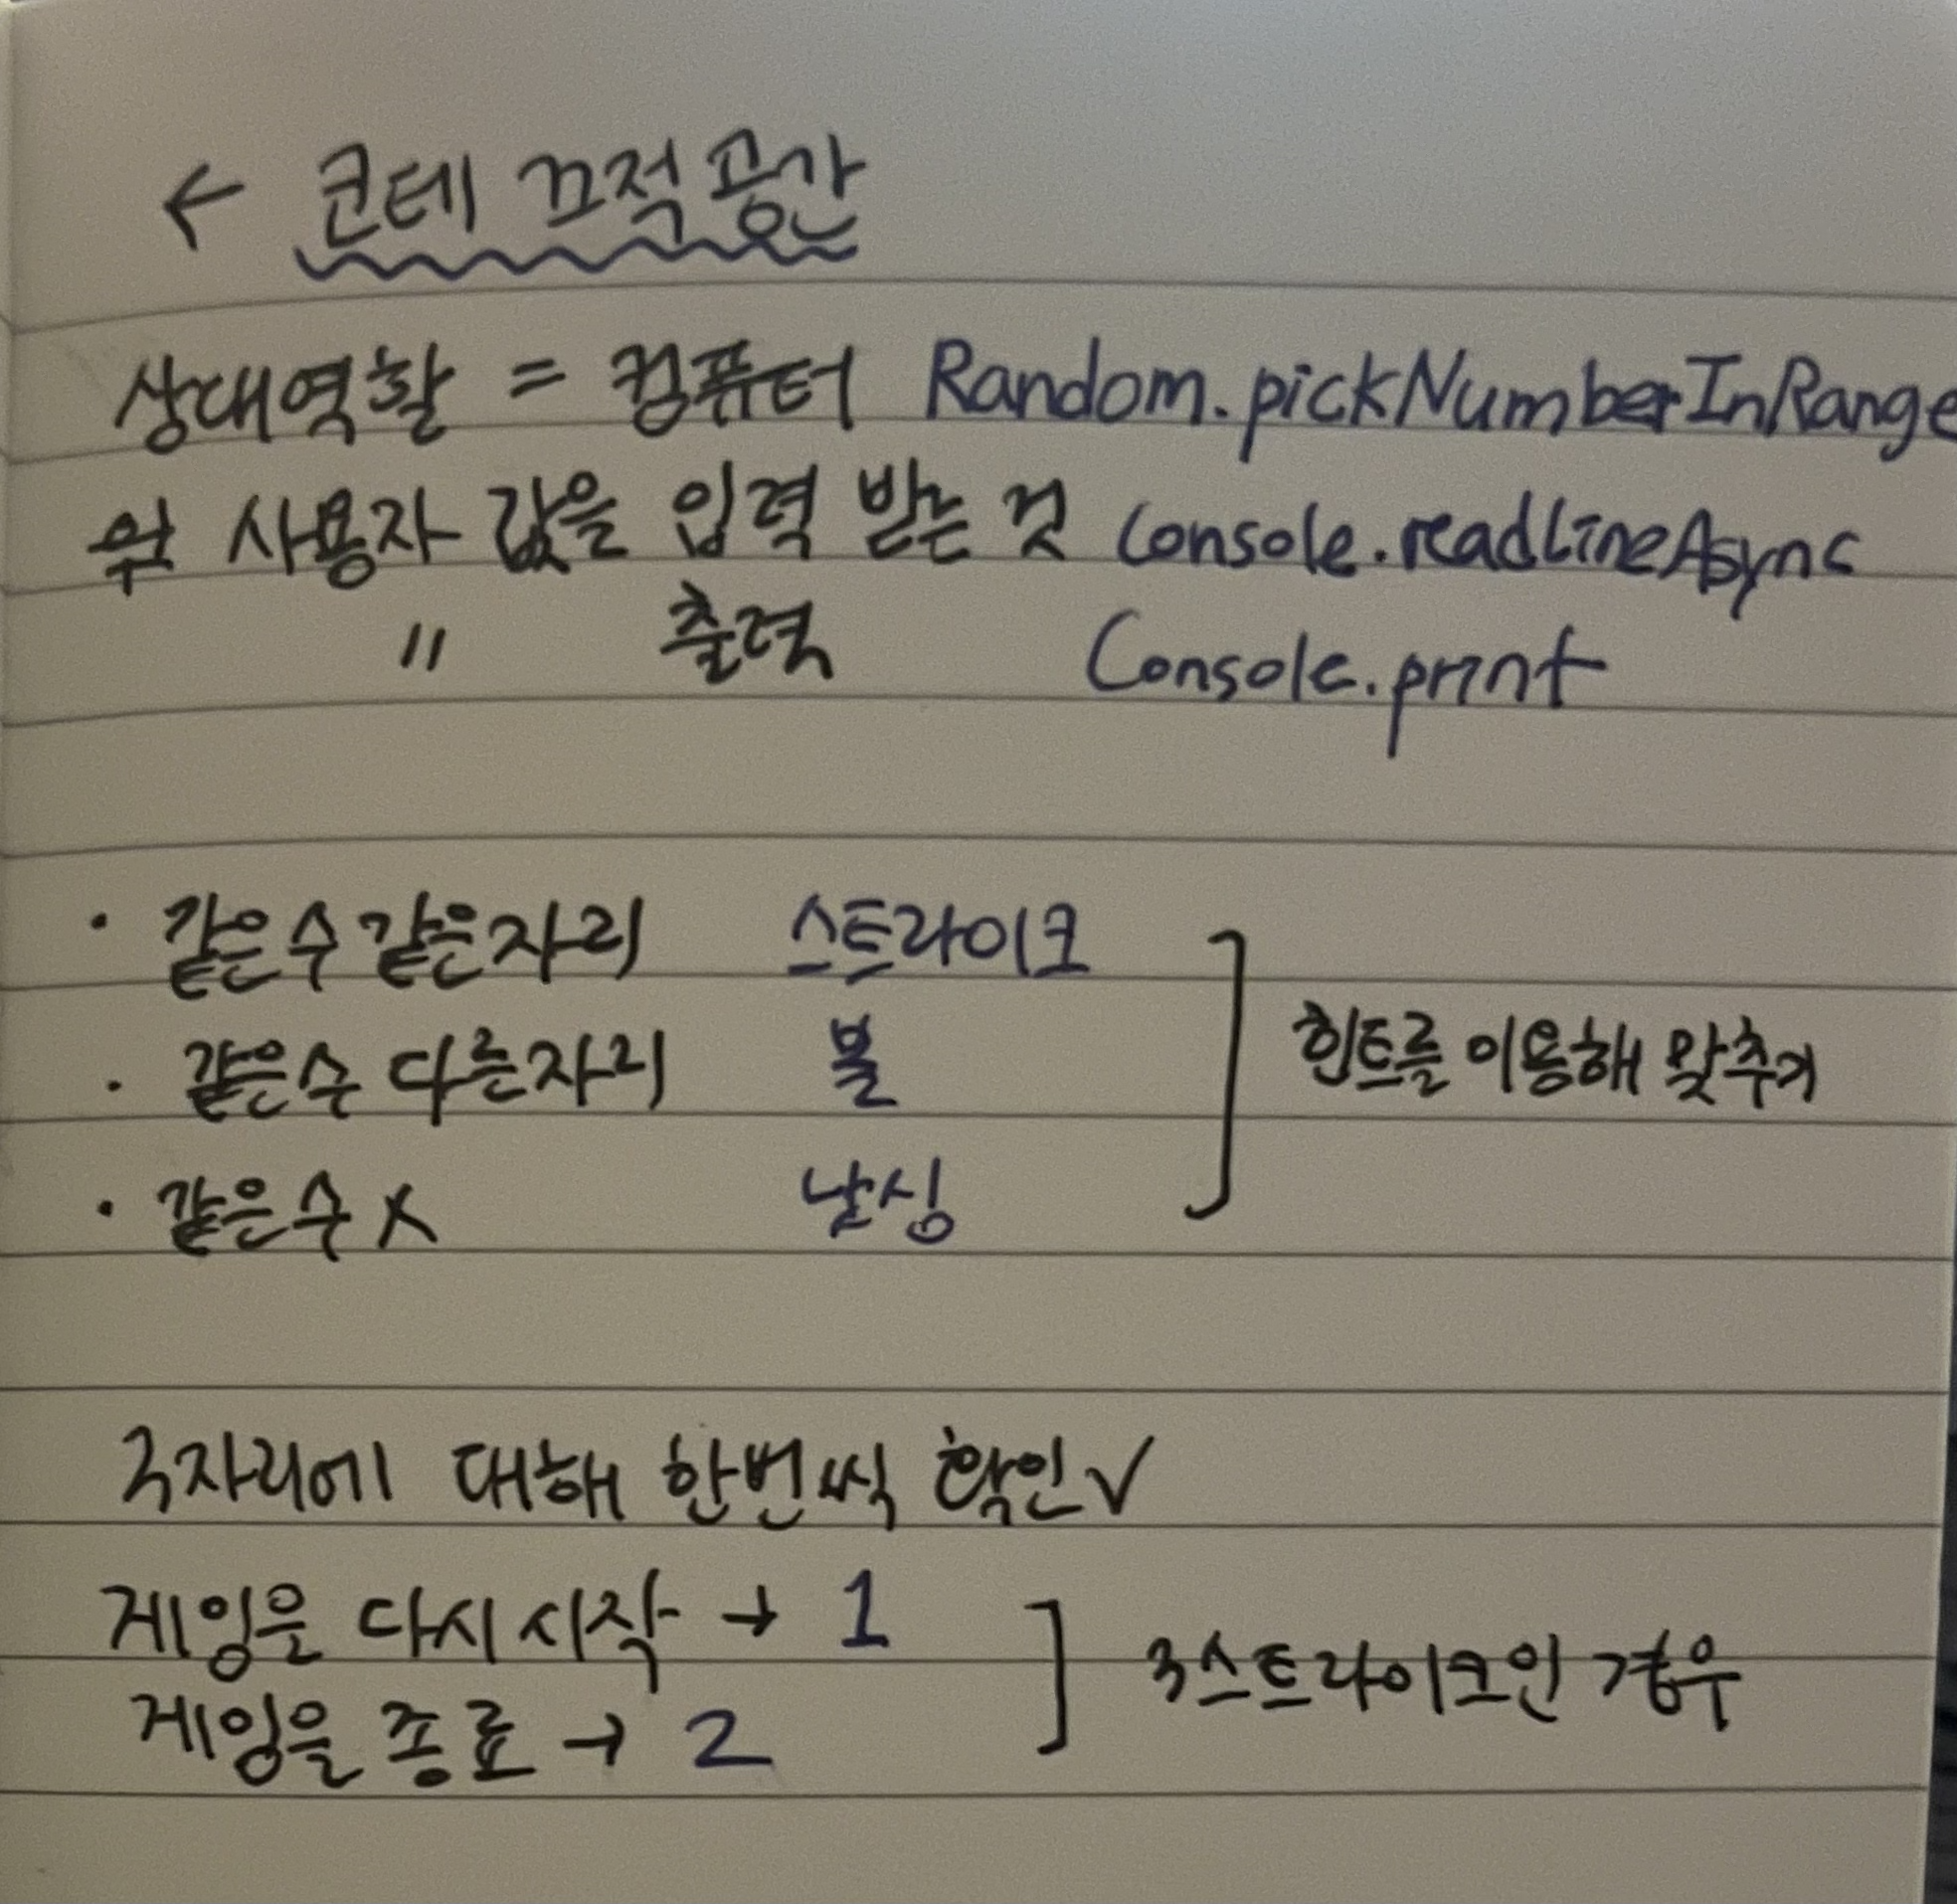 ← 코테 끄적공간
상대역할 = 컴퓨터 Random.pickNumberInRange
사용자 값을 입력 받는 것 Console.readLineAsync
〃 출력 Console.print
· 같은수 같은자리 스트라이크
· 같은수 다른자리 볼
· 같은수 X 낫싱
힌트를 이용해 맞추기
3자리에 대해 한번씩 확인✓
게임은 다시 시작 → 1
게임을 종료 → 2
3스트라이크인 경우